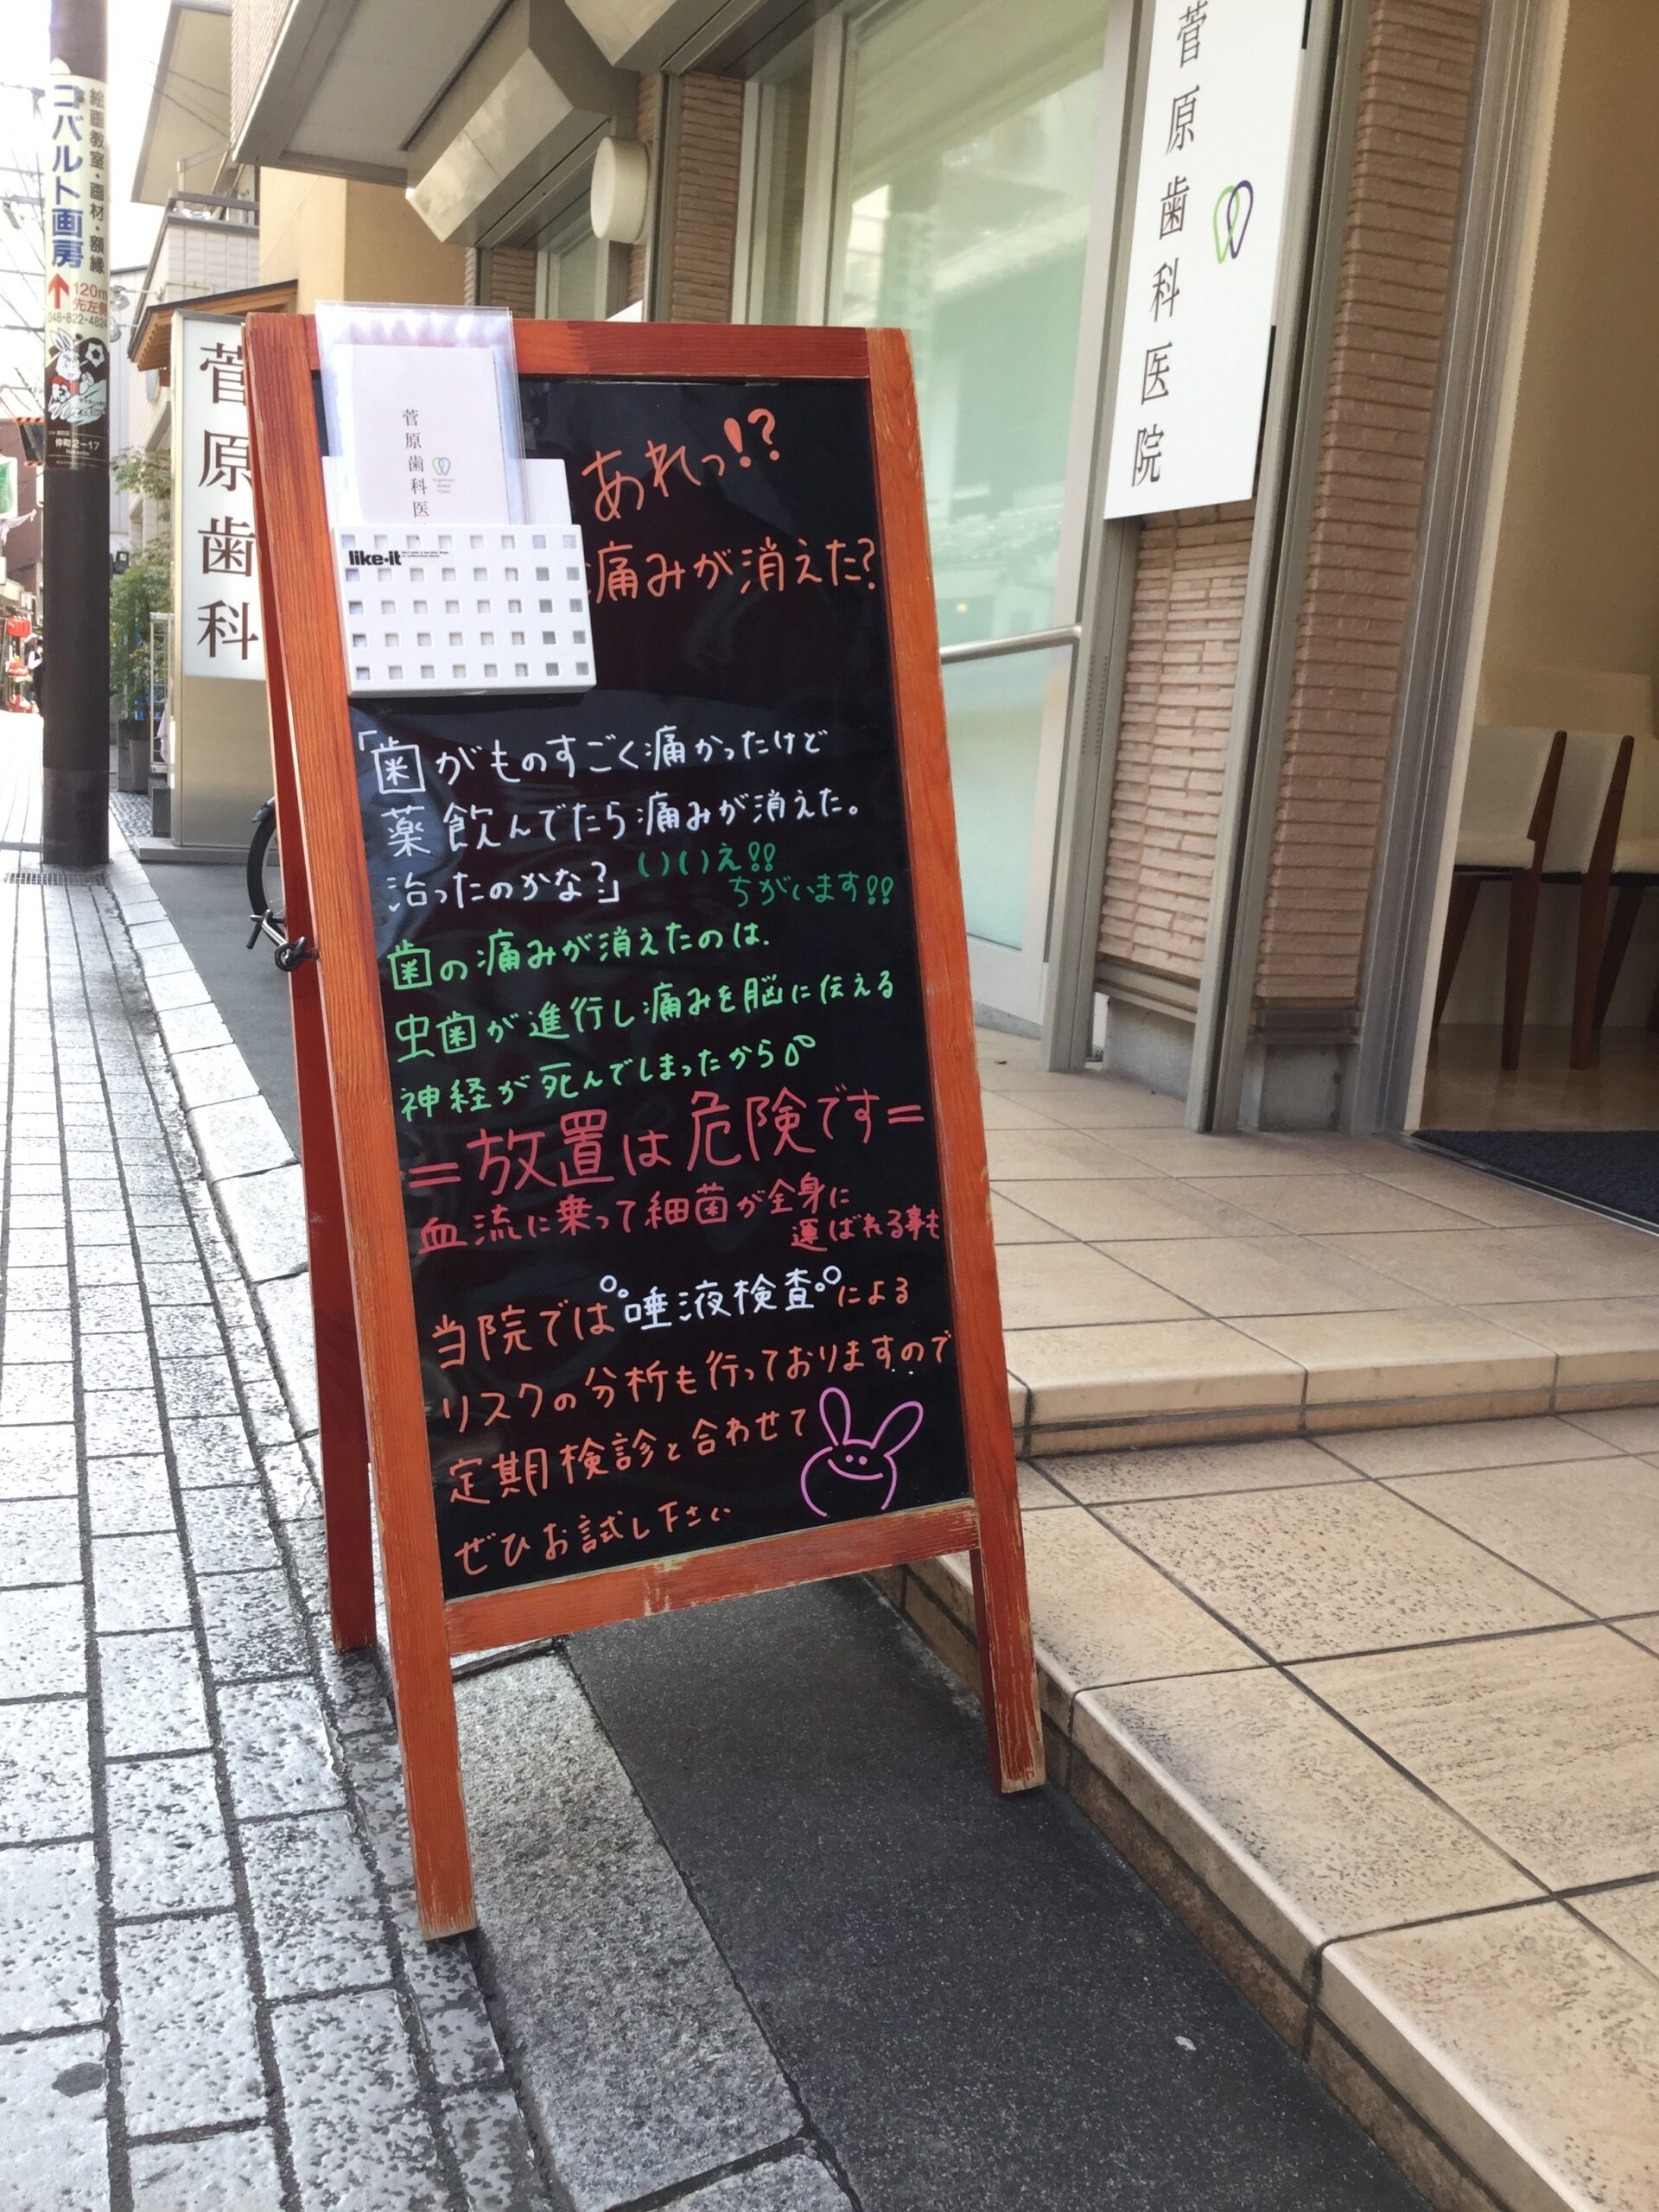 絵画教室・画材・額縁
コバルト画房
120m
先左側
048-822-4824
仲町2-17
菅原歯科
菅原歯科医院
菅原歯科医
like-it
あれっ!?
痛みが消えた?
「歯がものすごく痛かったけど
薬飲んでたら痛みが消えた。
治ったのかな?」
いいえ!!
ちがいます!!
歯の痛みが消えたのは、
虫歯が進行し痛みを脳に伝える
神経が死んでしまったから
=放置は危険です=
血流に乗って細菌が全身に
運ばれる事も
当院では唾液検査による
リスクの分析も行っておりますので
定期検診と合わせて
ぜひお試し下さい